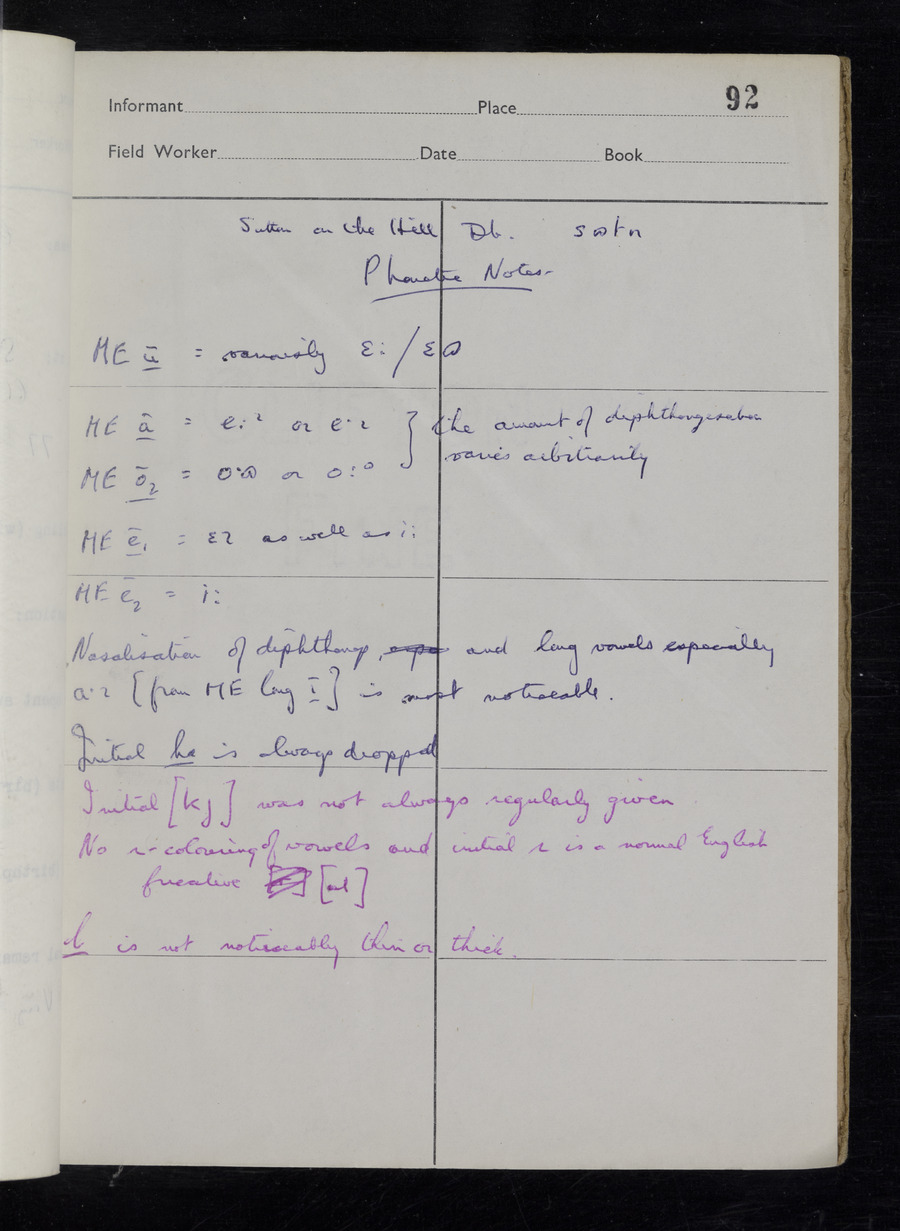 92
Informant Place
Field Worker Date Book
Sutton on the Hill Db. sʊtn
Phonetic Notes
ME ū = variously ɛ: / ɛʊ
ME ā = e:ɪ or e·ɪ } the amount of diphthongisation
ME ō₂ = o·ʊ or o:ᵒ varies arbitrarily
ME ē₁ = ɛɪ as well as i:
ME ē₂ = i:
Nasalisation of diphthongs, and long vowels especially
a·ɪ [from ME long ī] is most noticeable.
Initial is always dropped
Initial [kj] was not always regularly given
No r-colouring of vowels and initial r is a normal English
fricative
l is not noticeably thin or thick.